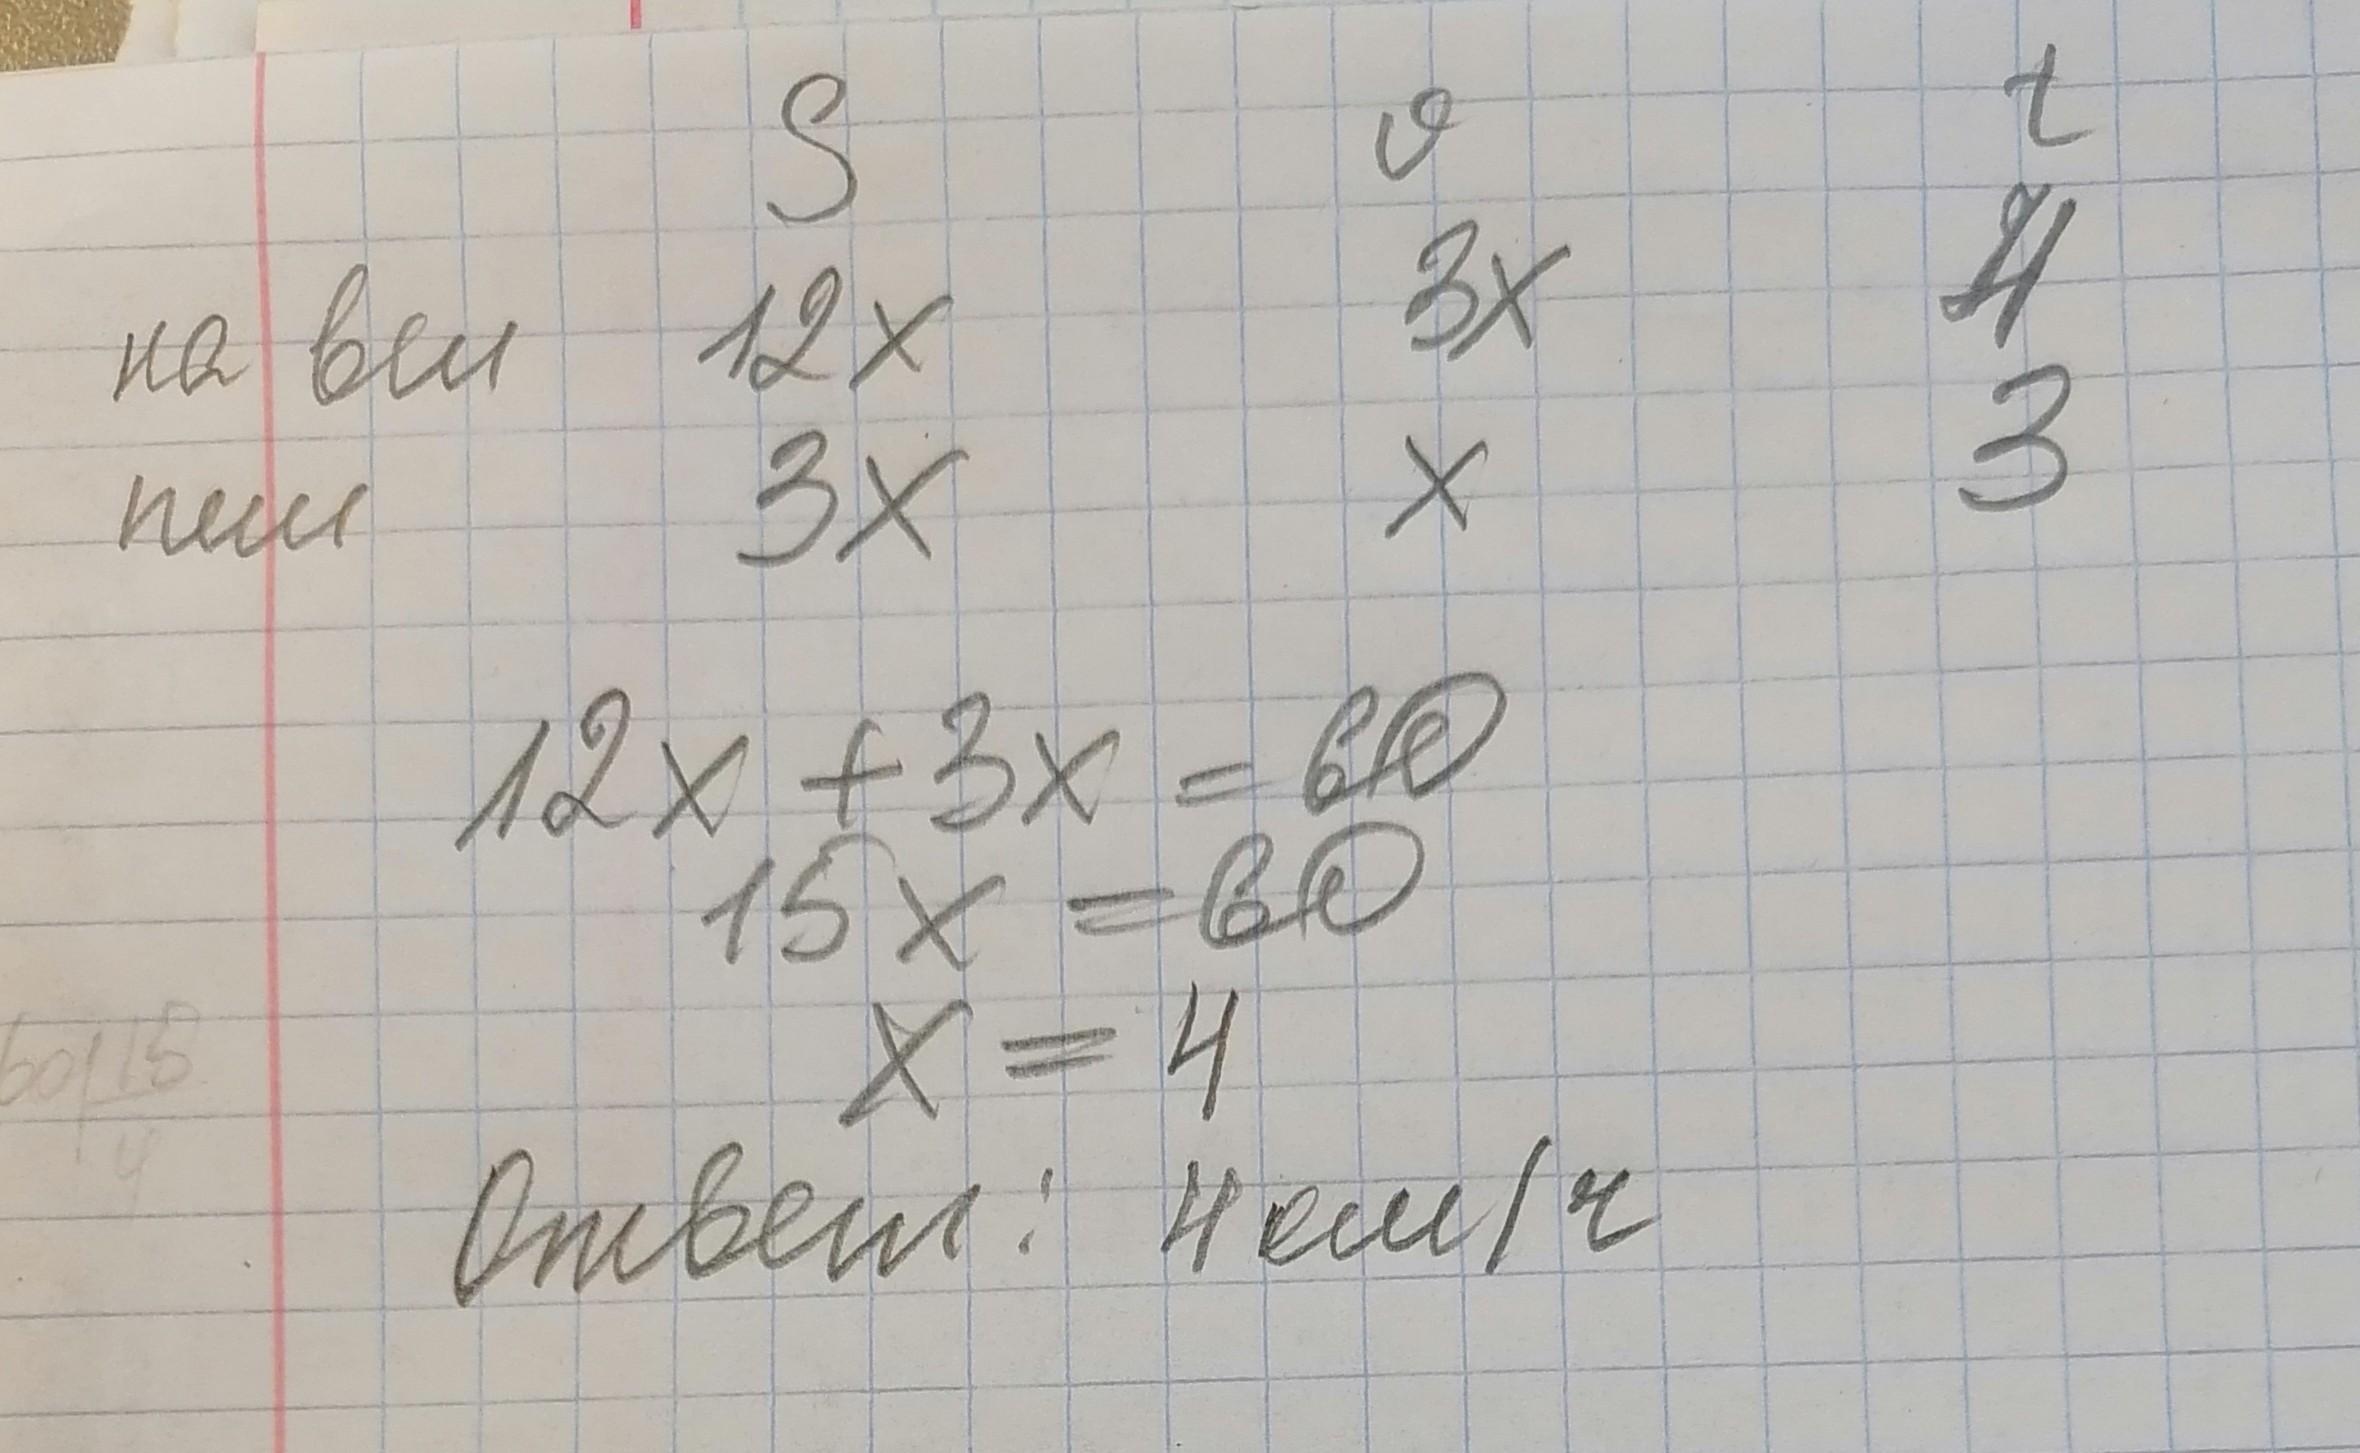 S v t
на вел 12x 3x 4
пеш 3x x 3
12x + 3x = 60
15x = 60
x = 4
60 15
4
Ответ: 4 км/ч